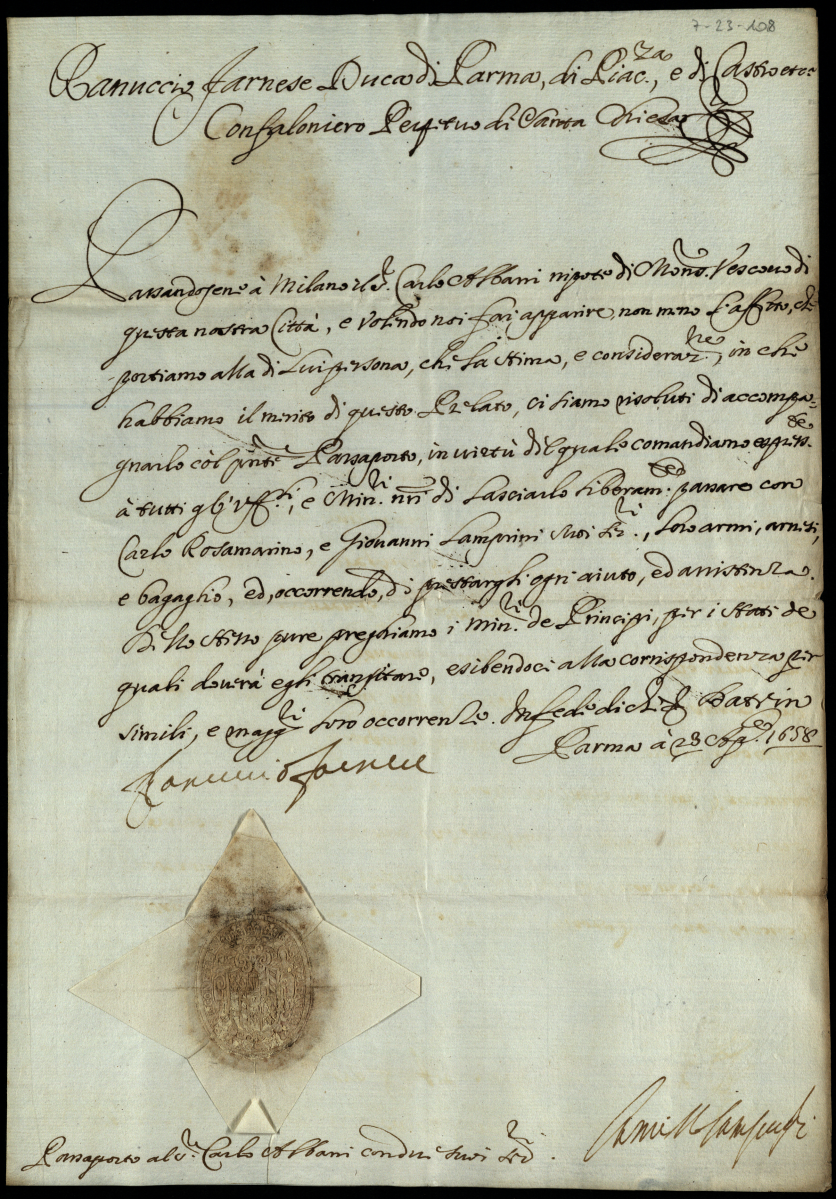 7-23-108
Ranuccio Farnese Duca di Parma, di Piac.za, e di Castro etc.
Confaloniero Perpetuo di Santa Chiesa
Passandosene à Milano il S.r Carlo Albani nipote di Mons.r Vescovo di
questa nostra Città, e volendo noi far apparire, non meno l'affetto, che
portiamo alla di lui persona, che la stima, e consideraz.ne, in che
habbiamo il merito di questo Prelato, ci siamo risoluti di accompa-
gnarlo còl pnte Passaporto, in virtù del quale comandiamo espres.te
à tutti gl'Uff.li, e Min.ri nri di lasciarlo liberam. passare con
Carlo Rosamarino, e Giovanni Lamprini suoi Ser.ri, loro armi, arnesi,
e bagaglio, ed, occorrendo, di prestargli ogni aiuto, ed assistenza.
Dello stesso pure preghiamo i Min.ri de Principi, per i stati de
quali doverà egli transitare, esibendoci alla corrispondenza per
simili, e magg.ri loro occorrenze. In fede di che Dat. in
Parma à 23 1658
Ranuccio Farnese
Passaporto al S.r Carlo Albani con due suoi Ser.ri.